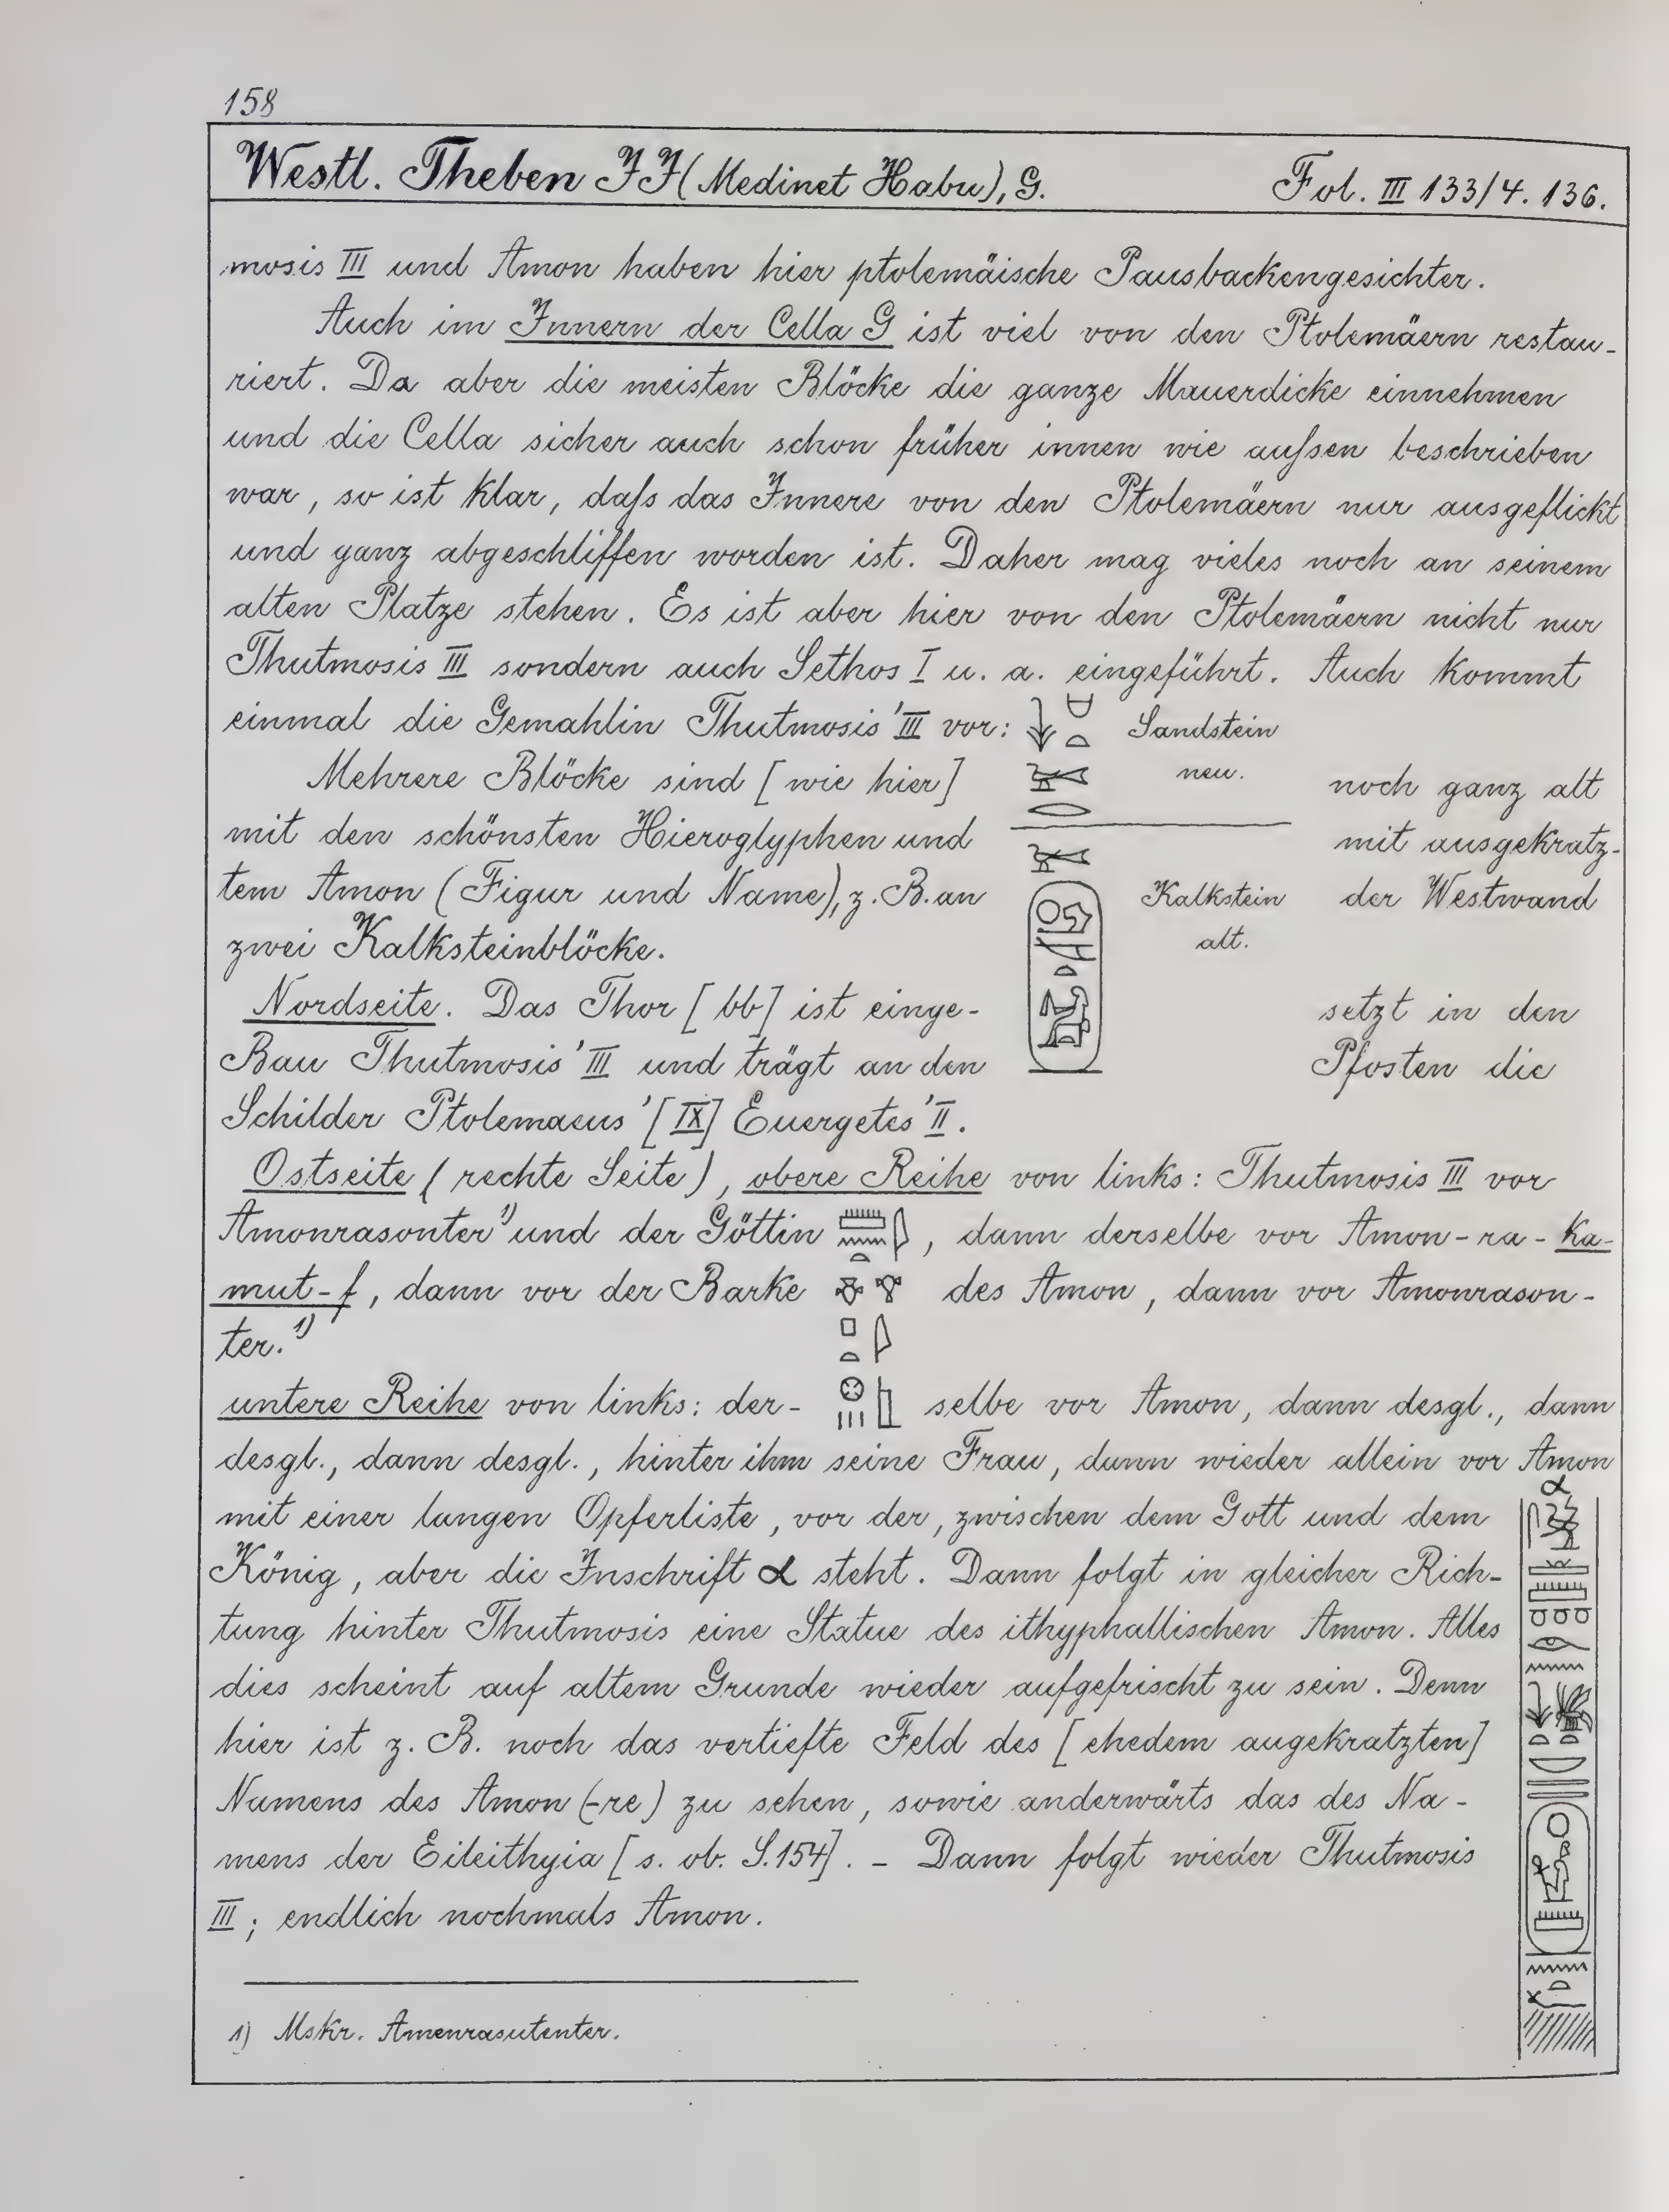 158
Westl. Theben II (Medinet Habu), G. Fol. III 133/4. 136.
mosis III und Amon haben hier ptolemäische Pausbackengesichter.
Auch im Innern der Cella G ist viel von den Ptolemäern restau-
riert. Da aber die meisten Blöcke die ganze Mauerdicke einnehmen
und die Cella sicher auch schon früher innen wie aufsen beschrieben
war, so ist klar, dafs das Innere von den Ptolemäern nur ausgeflickt
und ganz abgeschliffen worden ist. Daher mag vieles noch an seinem
alten Platze stehen. Es ist aber hier von den Ptolemäern nicht nur
Thutmosis III sondern auch Sethos I u. a. eingeführt. Auch kommt
einmal die Gemahlin Thutmosis' III vor: Sandstein
neu.
Mehrere Blöcke sind [wie hier] noch ganz alt
mit den schönsten Hieroglyphen und mit ausgekratz-
tem Amon (Figur und Name), z. B. an Kalkstein der Westwand
alt.
zwei Kalksteinblöcke.
Nordseite. Das Thor [bb] ist einge- setzt in den
Bau Thutmosis' III und trägt an den Pfosten die
Schilder Ptolemaeus' [IX] Euergetes' II.
Ostseite (rechte Seite), obere Reihe von links: Thutmosis III vor
Amonrasonter 1) und der Göttin , dann derselbe vor Amon-ra-ka-
mut-f, dann vor der Barke des Amon, dann vor Amonrason-
ter. 1)
untere Reihe von links: der- selbe vor Amon, dann desgl., dann
desgl., dann desgl., hinter ihm seine Frau, dann wieder allein vor Amon
α
mit einer langen Opferliste, vor der, zwischen dem Gott und dem
König, aber die Inschrift α steht. Dann folgt in gleicher Rich-
tung hinter Thutmosis eine Statue des ithyphallischen Amon. Alles
dies scheint auf altem Grunde wieder aufgefrischt zu sein. Denn
hier ist z. B. noch das vertiefte Feld des [ehedem augekratzten]
Namens des Amon (-re) zu sehen, sowie anderwärts das des Na-
mens der Eileithyia [s. ob. S. 154]. - Dann folgt wieder Thutmosis
III; endlich nochmals Amon.
1) Mskr. Amenrasutenter.